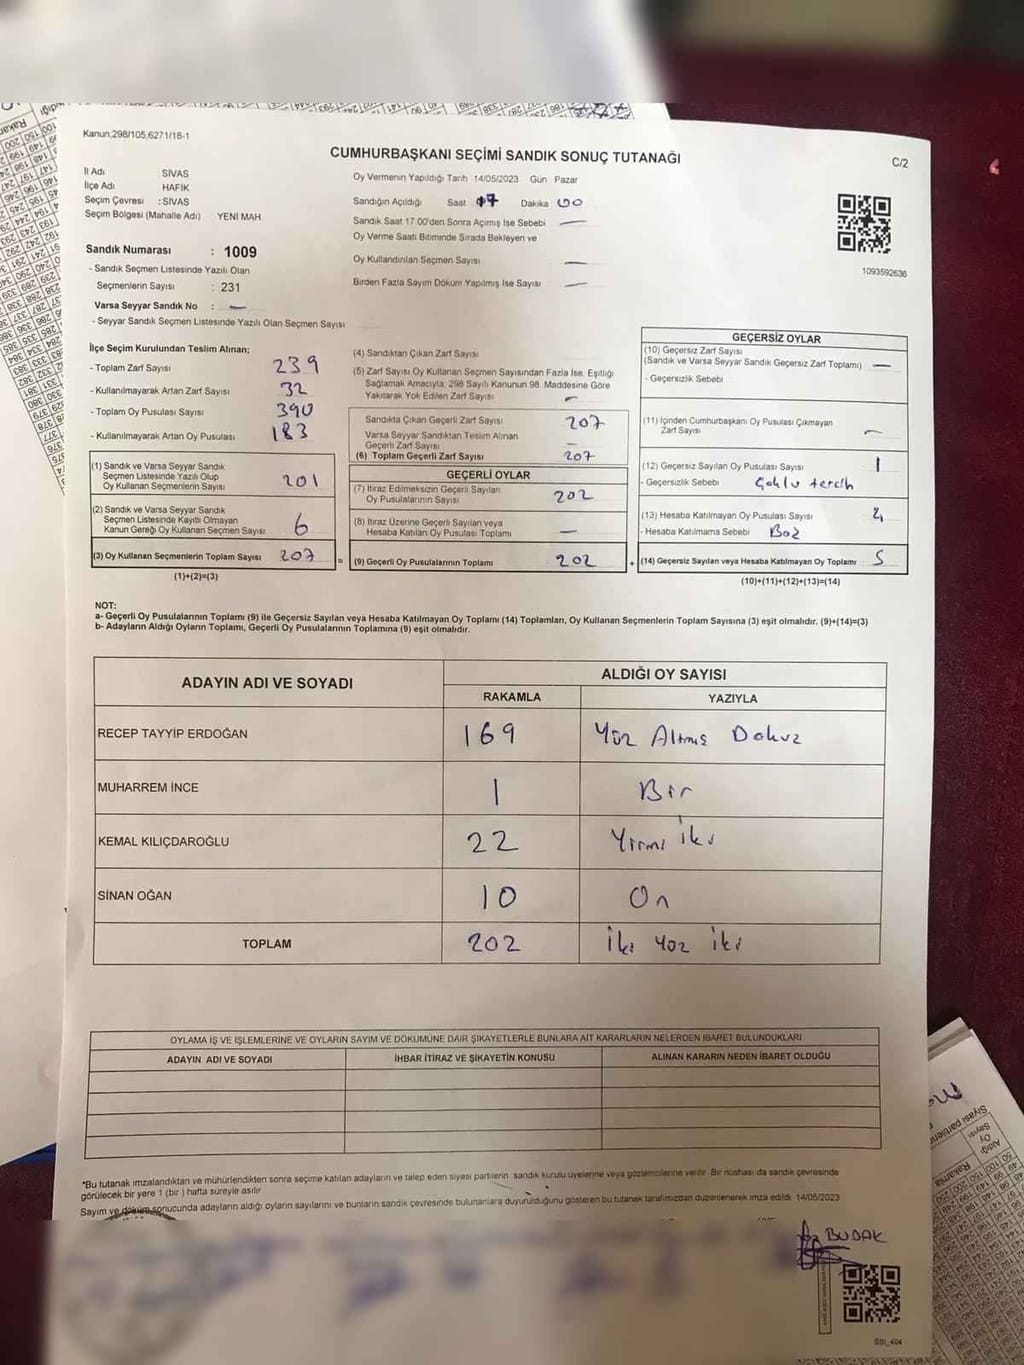 Kanun;298/105,6271/18-1
CUMHURBAŞKANI SEÇİMİ SANDIK SONUÇ TUTANAĞI
C/2
İl Adı SİVAS
İlçe Adı HAFİK
Seçim Çevresi : SİVAS
Seçim Bölgesi (Mahalle Adı) YENİ MAH.
Sandık Numarası : 1009
- Sandık Seçmen Listesinde Yazılı Olan
Seçmenlerin Sayısı : 231
Varsa Seyyar Sandık No : —
- Seyyar Sandık Seçmen Listesinde Yazılı Olan Seçmen Sayısı
Oy Vermenin Yapıldığı Tarih 14/05/2023 Gün Pazar
Sandığın Açıldığı Saat 17 Dakika 00
Sandık Saat 17.00'den Sonra Açımış İse Sebebi —
Oy Verme Saati Bitiminde Sırada Bekleyen ve
Oy Kullandırılan Seçmen Sayısı —
Birden Fazla Sayım Döküm Yapılmış İse Sayısı —
1093592636
İlçe Seçim Kurulundan Teslim Alınan;
- Toplam Zarf Sayısı 239
- Kullanılmayarak Artan Zarf Sayısı 32
- Toplam Oy Pusulası Sayısı 390
- Kullanılmayarak Artan Oy Pusulası 183
(1) Sandık ve Varsa Seyyar Sandık
Seçmen Listesinde Yazılı Olup
Oy Kullanan Seçmenlerin Sayısı 201
(2) Sandık ve Varsa Seyyar Sandık
Seçmen Listesinde Kayıtlı Olmayan
Kanun Gereği Oy Kullanan Seçmen Sayısı 6
(3) Oy Kullanan Seçmenlerin Toplam Sayısı 207 =
(1)+(2)=(3)
(4) Sandıktan Çıkan Zarf Sayısı
(5) Zarf Sayısı Oy Kullanan Seçmen Sayısından Fazla İse, Eşitliği
Sağlamak Amacıyla, 298 Sayılı Kanunun 98. Maddesine Göre
Yakılarak Yok Edilen Zarf Sayısı —
Sandıkta Çıkan Geçerli Zarf Sayısı 207
Varsa Seyyar Sandıktan Teslim Alınan
Geçerli Zarf Sayısı —
(6) Toplam Geçerli Zarf Sayısı 207
GEÇERLİ OYLAR
(7) İtiraz Edilmeksizin Geçerli Sayılan
Oy Pusulalarının Sayısı 202
(8) İtiraz Üzerine Geçerli Sayılan veya
Hesaba Katılan Oy Pusulası Toplamı —
(9) Geçerli Oy Pusulalarının Toplamı 202 +
GEÇERSİZ OYLAR
(10) Geçersiz Zarf Sayısı
(Sandık ve Varsa Seyyar Sandık Geçersiz Zarf Toplamı) —
- Geçersizlik Sebebi
(11) İçinden Cumhurbaşkanı Oy Pusulası Çıkmayan
Zarf Sayısı —
(12) Geçersiz Sayılan Oy Pusulası Sayısı 1
- Geçersizlik Sebebi Çoklu tercih
(13) Hesaba Katılmayan Oy Pusulası Sayısı
- Hesaba Katılmama Sebebi Boz
(14) Geçersiz Sayılan veya Hesaba Katılmayan Oy Toplamı 5
(10)+(11)+(12)+(13)=(14)
NOT:
a- Geçerli Oy Pusulalarının Toplamı (9) ile Geçersiz Sayılan veya Hesaba Katılmayan Oy Toplamı (14) Toplamları, Oy Kullanan Seçmenlerin Toplam Sayısına (3) eşit olmalıdır. (9)+(14)=(3)
b- Adayların Aldığı Oyların Toplamı, Geçerli Oy Pusulalarının Toplamına (9) eşit olmalıdır.
ADAYIN ADI VE SOYADI ALDIĞI OY SAYISI
RAKAMLA YAZIYLA
RECEP TAYYİP ERDOĞAN 169 Yüz Altmış Dokuz
MUHARREM İNCE 1 Bir
KEMAL KILIÇDAROĞLU 22 Yirmi iki
SİNAN OĞAN 10 On
TOPLAM 202 İki yüz iki
OYLAMA İŞ VE İŞLEMLERİNE VE OYLARIN SAYIM VE DÖKÜMÜNE DAİR ŞİKAYETLERLE BUNLARA AİT KARARLARIN NELERDEN İBARET BULUNDUKLARI
ADAYIN ADI VE SOYADI İHBAR İTİRAZ VE ŞİKAYETİN KONUSU ALINAN KARARIN NEDEN İBARET OLDUĞU
*Bu tutanak imzalandıktan ve mühürlendikten sonra seçime katılan adayların ve talep eden siyasi partilerin sandık kurulu üyelerine veya gözlemcilerine verilir. Bir nüshası da sandık çevresinde
görülecek bir yere 1 (bir) hafta süreyle asılır
Sayım ve döküm sonucunda adayların aldığı oyların sayılarını ve bunların sandık çevresinde bulunanlara duyurulduğunu gösteren bu tutanak tarafımızdan düzenlenerek imza edildi. 14/05/2023
BUDAK